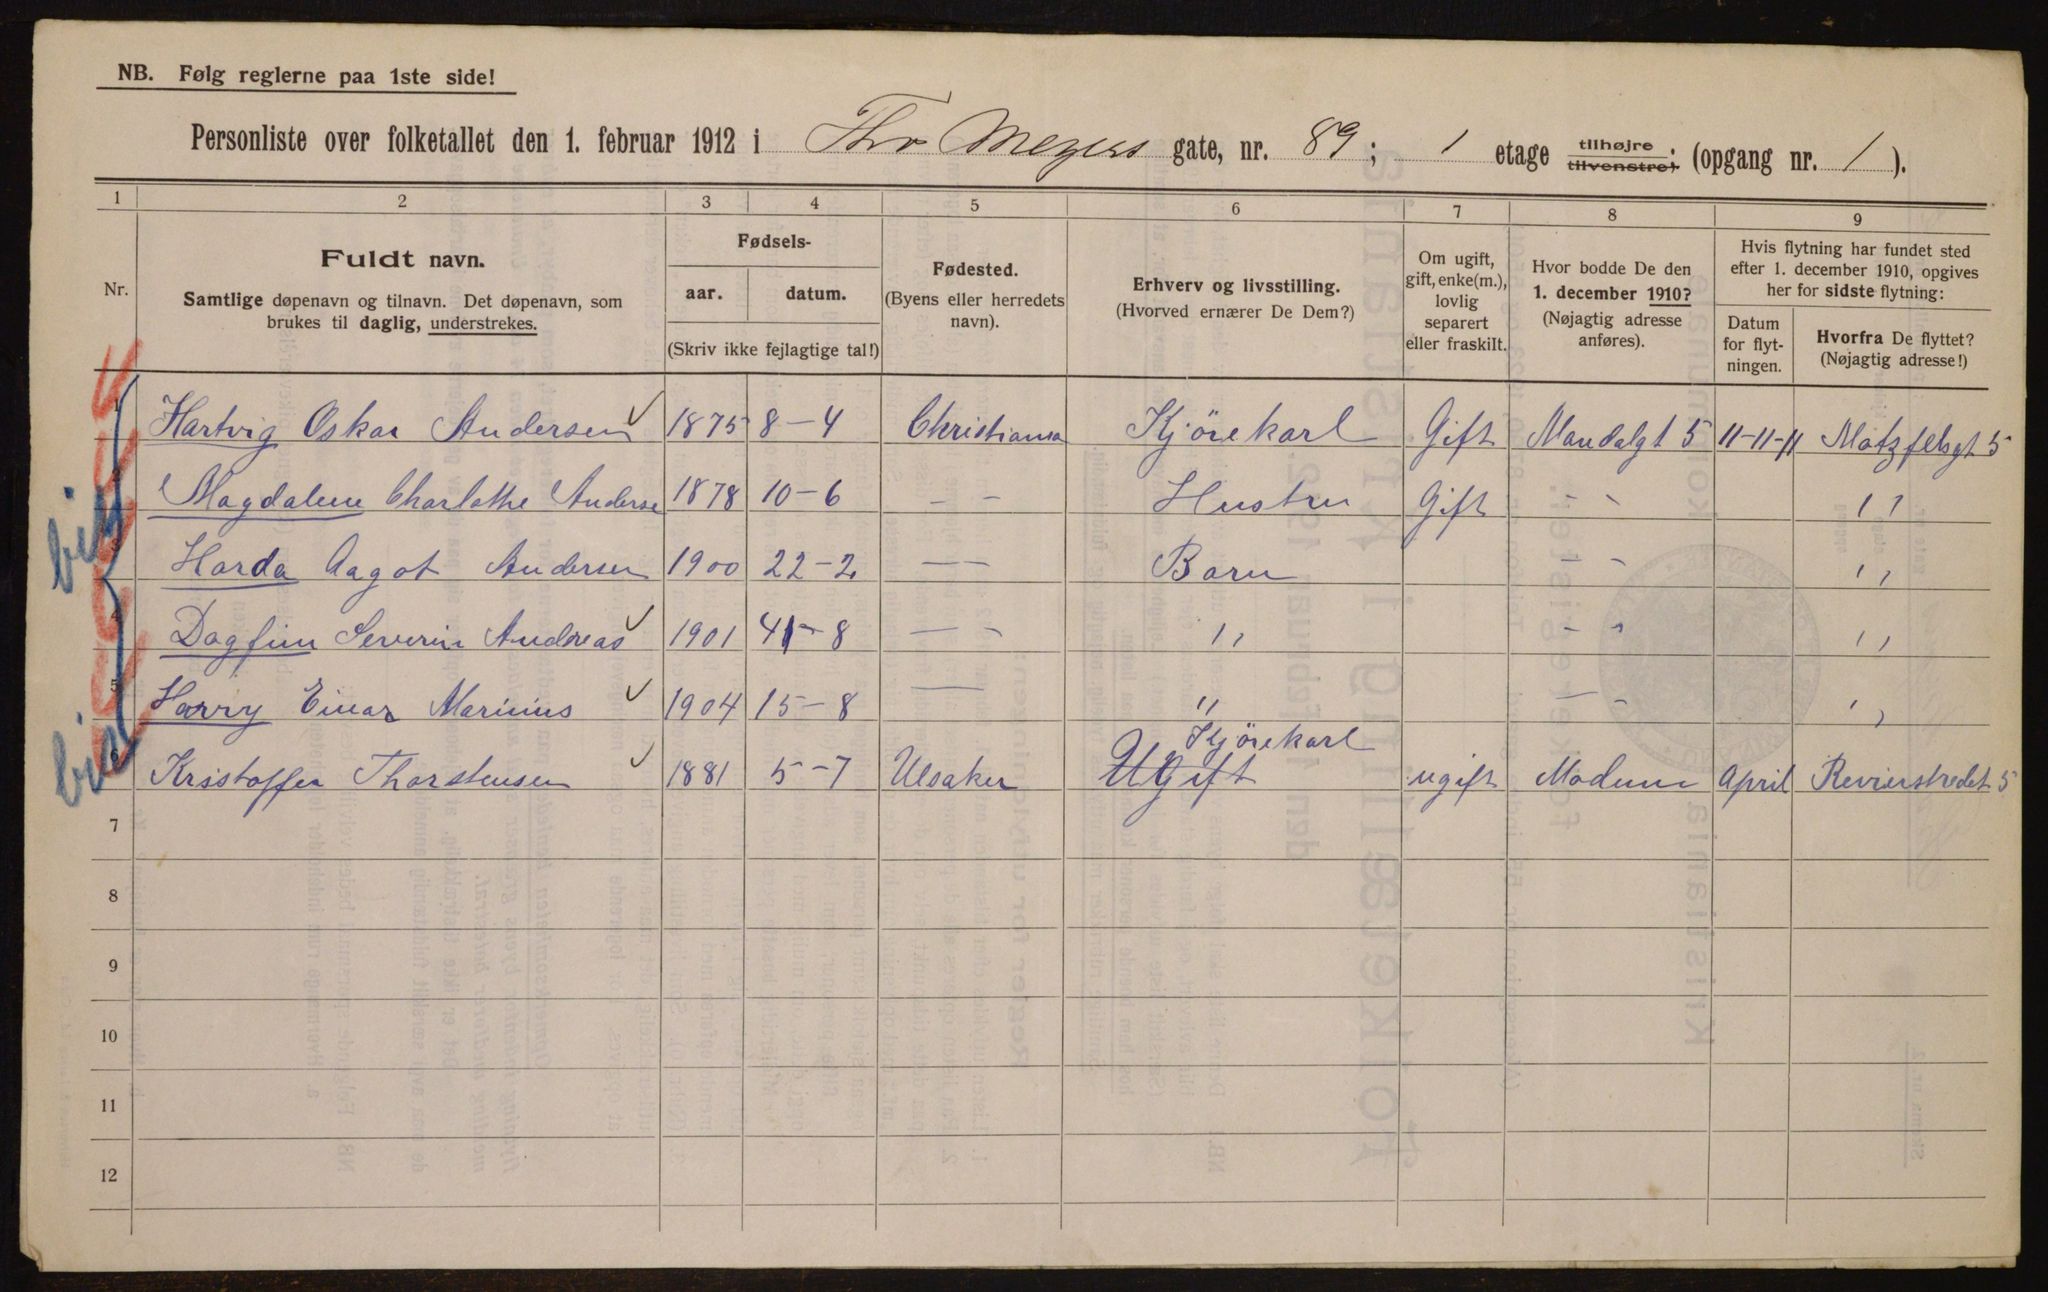 NB. Følg reglerne paa 1ste side!
Personliste over folketallet den 1. februar 1912 i Thv Meyers gate, nr. 89; 1 etage tilhøjre tilvenstre; (opgang nr. 1).
1 2 3 4 5 6 7 8 9
Nr.
Fuldt navn.
Samtlige døpenavn og tilnavn. Det døpenavn, som
brukes til daglig, understrekes.
Fødsels-
aar. datum.
(Skriv ikke fejlagtige tal!)
Fødested.
(Byens eller herredets
navn).
Erhverv og livsstilling.
(Hvorved ernærer De Dem?)
Om ugift,
gift, enke(m.),
lovlig
separert
eller fraskilt.
Hvor bodde De den
1. december 1910?
(Nøjagtig adresse
anføres).
Hvis flytning har fundet sted
efter 1. december 1910, opgives
her for sidste flytning:
Datum
for flyt-
ningen.
Hvorfra De flyttet?
(Nøjagtig adresse!)
1 Hartvig Oskar Andersen 1875 8-4 Christiania Kjörekarl Gift Mandalgt 5 11-11-11 Motzfelsgt 5
2 Magdalene Charlothe Anderse 1878 10-6 - - Hustru Gift - - ,,
3 Harda Aagot Andersen 1900 22-2 - - Barn - - ,,
4 Dagfinn Severin Andreas 1901 - 8 - - ,, - - ,,
5 Harry Einar Marinius 1904 15-8 - - ,, - - ,,
Kjörekarl
6 Kristoffer Thorstensen 1881 5-7 Ulsaker Ugift ugift Modum April Revierstredet 5
7
8
9
10
11
12